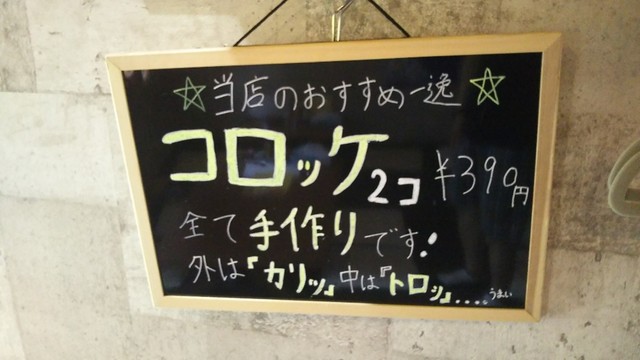 ☆当店のおすすめ一逸☆
コロッケ2コ ¥390円
全て手作りです!
外は『カリッ』中は『トロッ』....うまい